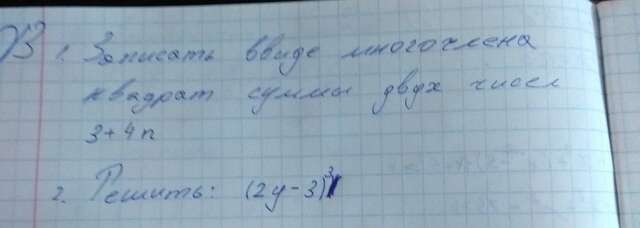 1. Записать ввиде многочлена
квадрат суммы двух чисел
3+4n
2. Решить: (2y-3)³